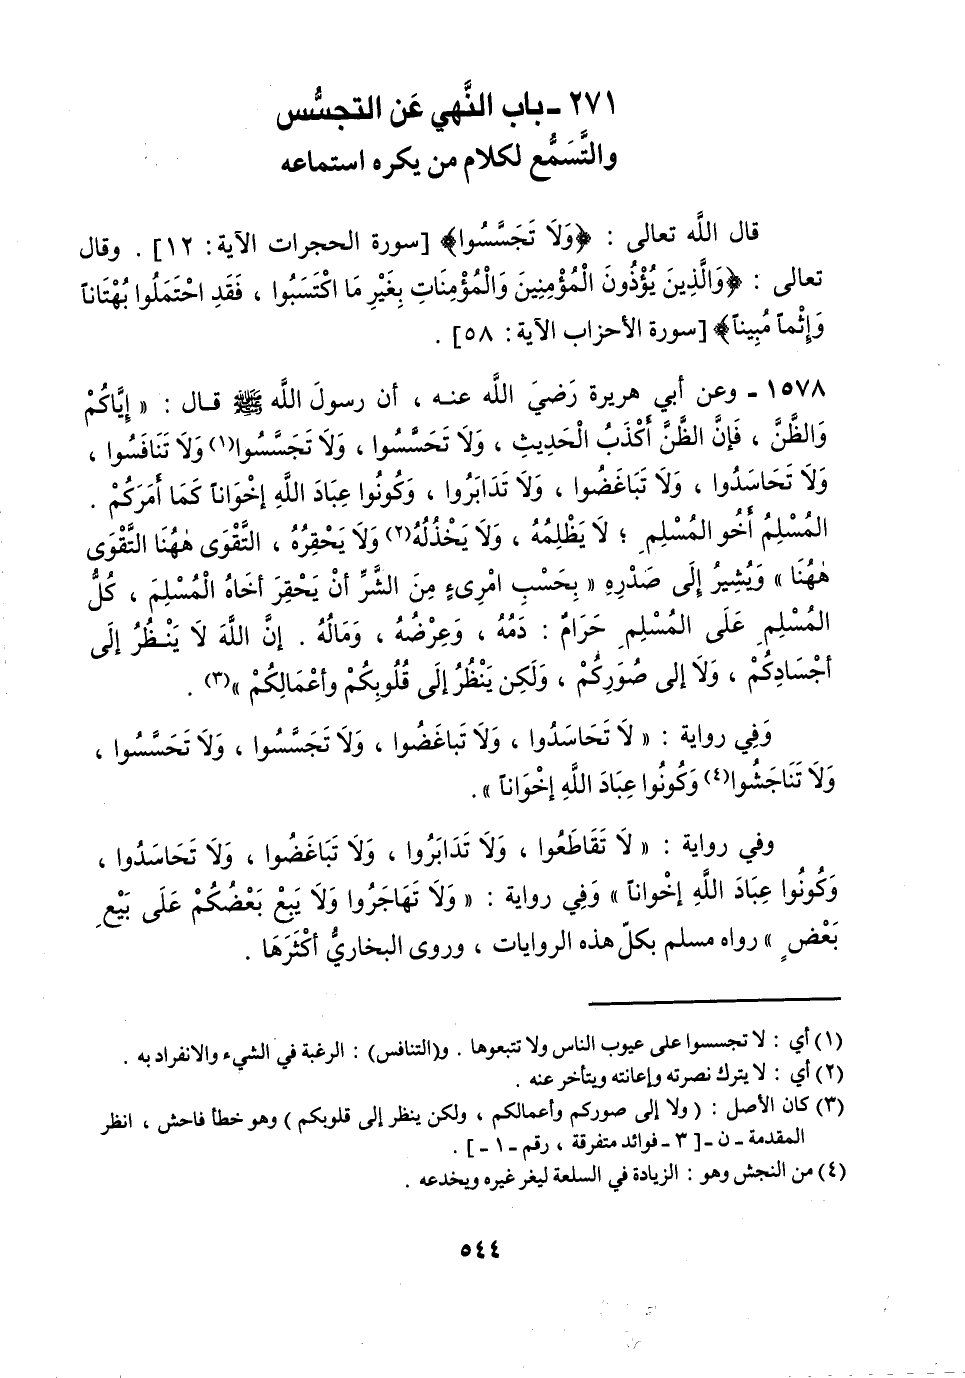 ٢٧١ ـ باب النَّهي عَن التجسُّس
والتَّسَمُّع لكلام من يكره استماعه
قال اللَّه تعالى : ﴿وَلَا تَجَسَّسُوا﴾ [سورة الحجرات الآية: ١٢] . وقال
تعالى : ﴿وَالَّذِينَ يُؤْذُونَ الْمُؤْمِنِينَ وَالْمُؤْمِنَاتِ بِغَيْرِ مَا اكْتَسَبُوا ، فَقَدِ احْتَمَلُوا بُهْتَاناً
وَإِثْماً مُبِيناً﴾ [سورة الأحزاب الآية: ٥٨] .
١٥٧٨ ـ وعن أبي هريرة رَضيَ اللَّه عنـه ، أن رسولَ اللَّه ﷺ قـال : « إِيَّاكُمْ
وَالظَّنَّ ، فَإِنَّ الظَّنَّ أَكْذَبُ الْحَدِيثِ ، وَلَا تَحَسَّسُوا ، وَلَا تَجَسَّسُوا(١) وَلَا تَنَافَسُوا ،
وَلَا تَحَاسَدُوا ، وَلَا تَبَاغَضُوا ، وَلَا تَدَابَرُوا ، وَكُونُوا عِبَادَ اللَّهِ إخْوَاناً كَمَا أَمَرَكُمْ .
المُسْلِمُ أَخُو المُسْلِمِ ؛ لَا يَظْلِمُهُ ، وَلَا يَخْذُلُهُ(٢) وَلَا يَحْقِرُهُ ، التَّقْوَى هٰهُنَا التَّقْوَى
هٰهُنَا » وَيُشِيرُ إِلَى صَدْرِهِ « بِحَسْبِ امْرِىءٍ مِنَ الشَّرِّ أنْ يَحْقِرَ أخَاهُ الْمُسْلِمَ ، كُلُّ
المُسْلِمِ عَلَى المُسْلِمِ حَرَامٌ : دَمُهُ ، وَعِرْضُهُ ، وَمَالُهُ . إنَّ اللَّهَ لَا يَنْـظُرُ إلَى
أجْسَادِكُمْ ، وَلَا إلى صُوَرِكُمْ ، وَلَكِن يَنْظُرُ إلَى قُلُوبِكُمْ وأعْمَالِكُمْ »(٣) .
وَفِي رواية : « لَا تَحَاسَدُوا ، وَلَا تَباغَضُوا ، وَلَا تَجَسَّسُوا ، وَلَا تَحَسَّسُوا ،
وَلَا تَنَاجَشُوا(٤) وَكُونُوا عِبَادَ اللَّهِ إخْوَاناً » .
وفي رواية : « لَا تَقَاطَعُوا ، وَلَا تَدَابَرُوا ، وَلَا تَبَاغَضُوا ، وَلَا تَحَاسَدُوا ،
وَكُونُوا عِبَادَ اللَّهِ إخْواناً » وَفِي رواية : « وَلَا تَهَاجَرُوا وَلَا يَبِعْ بَعْضُكُمْ عَلَى بَيْعِ
بَعْضٍ » رواه مسلم بكلّ هذه الروايات ، وروى البخاريُّ أكْثَرَهَا .
(١) أي : لا تجسسوا على عيوب الناس ولا تتبعوها . و(التنافس) : الرغبة في الشيء والانفراد به .
(٢) أي : لا يترك نصرته وإعانته ويتأخر عنه .
(٣) كان الأصل : ( ولا إلى صوركم وأعمالكم ، ولكن ينظر إلى قلوبكم ) وهو خطأ فاحش ، انظر
المقدمة ـ ن ـ [ ٣ ـ فوائد متفرقة ، رقم ـ ١ ـ ] .
(٤) من النجش وهو : الزيادة في السلعة ليغر غيره ويخدعه .
٥٤٤